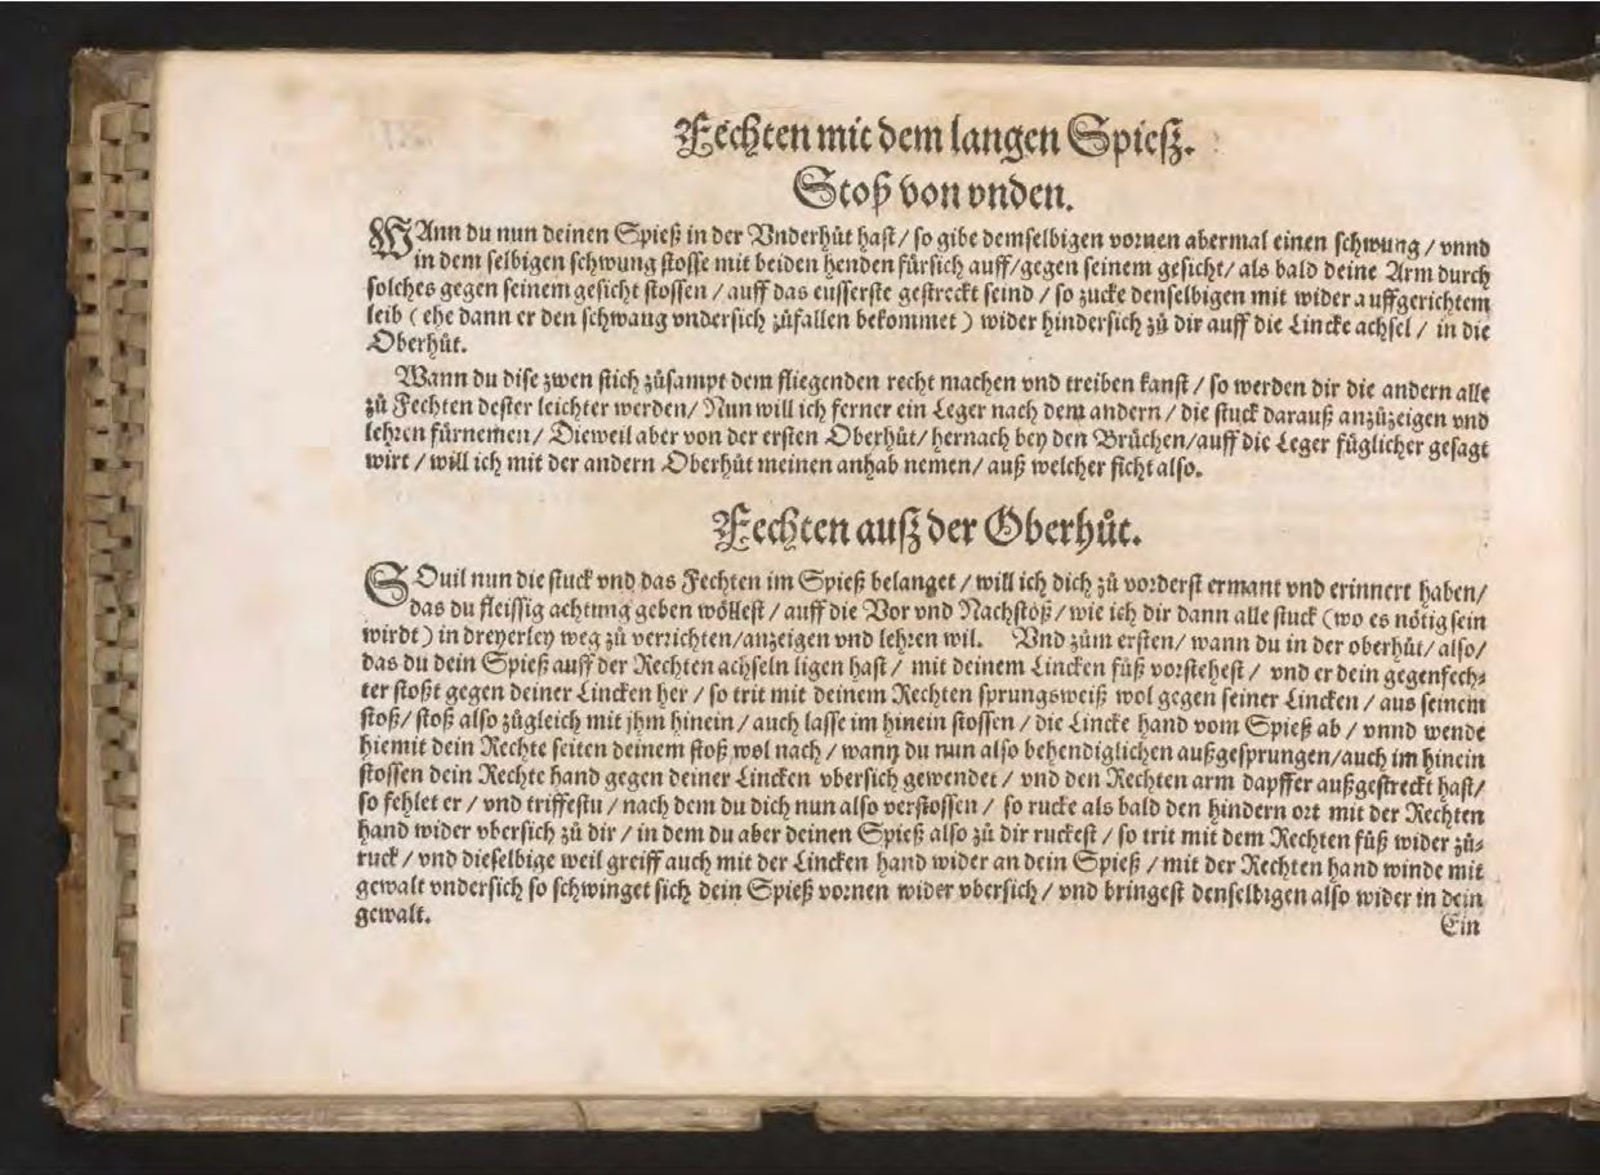 Fechten mit dem langen Spiesz.
Stoß von vnden.
WAnn du nun deinen Spieß in der Vnderhůt hast / so gibe demselbigen vornen abermal einen schwung / vnnd
in dem selbigen schwung stosse mit beiden henden fürsich auff / gegen seinem gesicht / als bald deine Arm durch
solches gegen seinem gesicht stossen / auff das eusserste gestreckt seind / so zucke denselbigen mit wider auffgerichtem
leib ( ehe dann er den schwang vndersich zůfallen bekommet ) wider hindersich zů dir auff die Lincke achsel / in die
Oberhůt.
Wann du dise zwen stich zůsampt dem fliegenden recht machen vnd treiben kanst / so werden dir die andern alle
zů Fechten dester leichter werden / Nun will ich ferner ein Leger nach dem andern / die stuck darauß anzůzeigen vnd
lehren fürnemen / Dieweil aber von der ersten Oberhůt / hernach bey den Brüchen / auff die Leger füglicher gesagt
wirt / will ich mit der andern Oberhůt meinen anhab nemen / auß welcher ficht also.
Fechten ausz der Oberhůt.
SOuil nun die stuck vnd das Fechten im Spieß belanget / will ich dich zů vorderst ermant vnd erinnert haben /
das du fleissig achtung geben wöllest / auff die Vor vnd Nachstöß / wie ich dir dann alle stuck ( wo es nötig sein
wirdt ) in dreyerley weg zů verrichten / anzeigen vnd lehren wil. Vnd zům ersten / wann du in der oberhůt / also /
das du dein Spieß auff der Rechten achseln ligen hast / mit deinem Lincken fůß vorstehest / vnd er dein gegenfech⸗
ter stoßt gegen deiner Lincken her / so trit mit deinem Rechten sprungsweiß wol gegen seiner Lincken / aus seinem
stoß / stoß also zůgleich mit jhm hinein / auch lasse im hinein stossen / die Lincke hand vom Spieß ab / vnnd wende
hiemit dein Rechte seiten deinem stoß wol nach / wann du nun also behendiglichen außgesprungen / auch im hinein
stossen dein Rechte hand gegen deiner Lincken vbersich gewendet / vnd den Rechten arm dapffer außgestreckt hast /
so fehlet er / vnd triffestu / nach dem du dich nun also verstossen / so rucke als bald den hindern ort mit der Rechten
hand wider vbersich zů dir / in dem du aber deinen Spieß also zů dir ruckest / so trit mit dem Rechten fůß wider zů⸗
ruck / vnd dieselbige weil greiff auch mit der Lincken hand wider an dein Spieß / mit der Rechten hand winde mit
gewalt vndersich so schwinget sich dein Spieß vornen wider vbersich / vnd bringest denselbigen also wider in dein
gewalt.
Ein